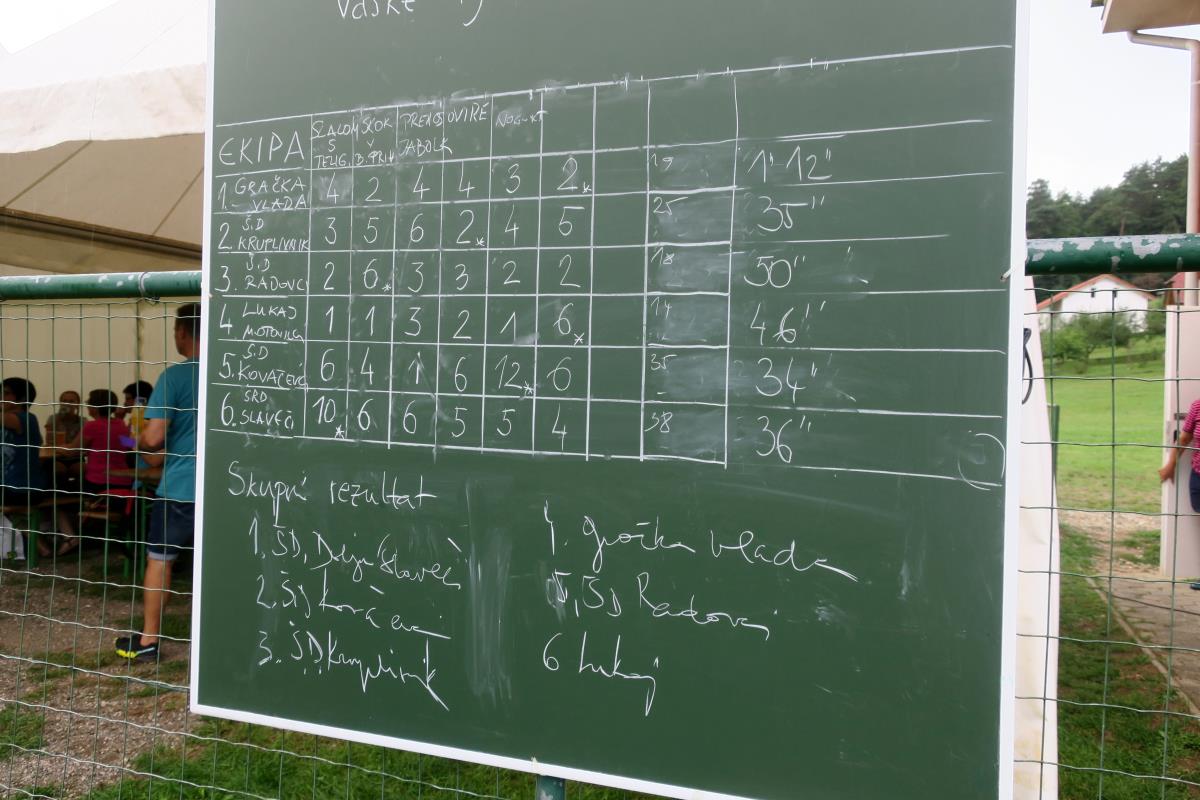 Vaške
EKIPA SLALOM S TELIG. SKOK V B.PRIV PRENOS JABOLK OVIRE NOGOMET
1. GRAČKA VLADA 4 2 4 4 3 2* 19 1" 12"
2. Š.D KRUPLIVNIK 3 5 6 2* 4 5 25 35"
3. Š.D RADOVCI 2 6* 3 3 2 2 18 50"
4 LUKAJ 1 1 3 2 1 6* 14 46"
5. Š.D KOVAČEVC 6 4 1 6 12* 6 35 34"
6. ŠRD SLAVEČI 10* 6 6 5 5 4 38 36"
Skupni rezultat
1. ŠD, Slaveči
2. ŠD Kovačevci
3. ŠD Kruplivnik
4. gračka vlada
5, ŠD Radovci
6 Lukaj